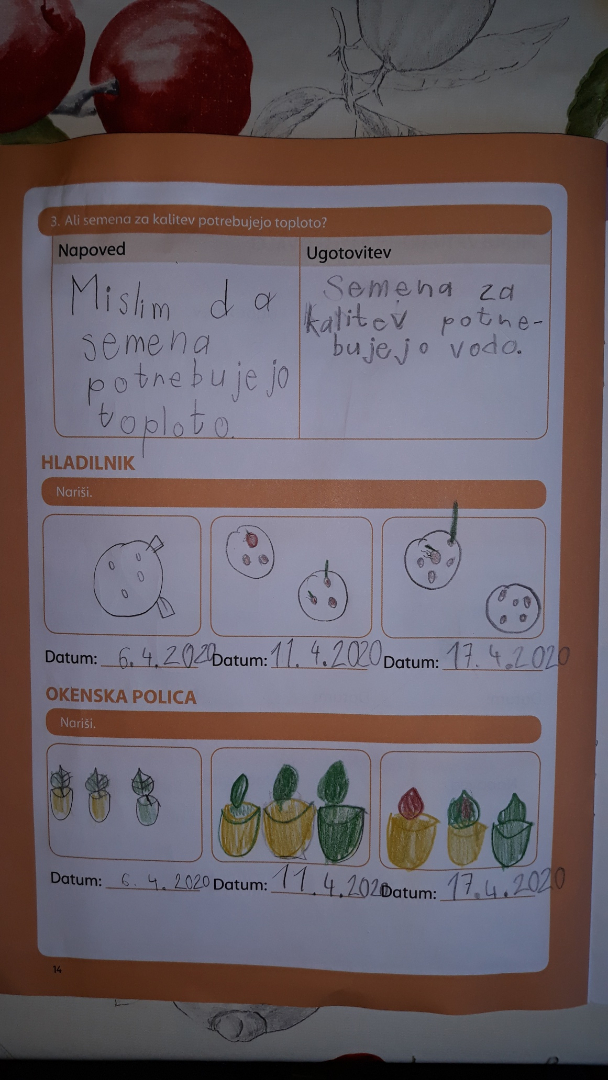 3. Ali semena za kalitev potrebujejo toploto?
Napoved
Mislim da
semena
potrebujejo
toploto.
Ugotovitev
Semena za
kalitev potre-
bujejo vodo.
HLADILNIK
Nariši.
Datum: 6.4.2020 Datum: 11.4.2020 Datum: 17.4.2020
OKENSKA POLICA
Nariši.
Datum: 6.4.2020 Datum: 11.4.2020 Datum: 17.4.2020
14